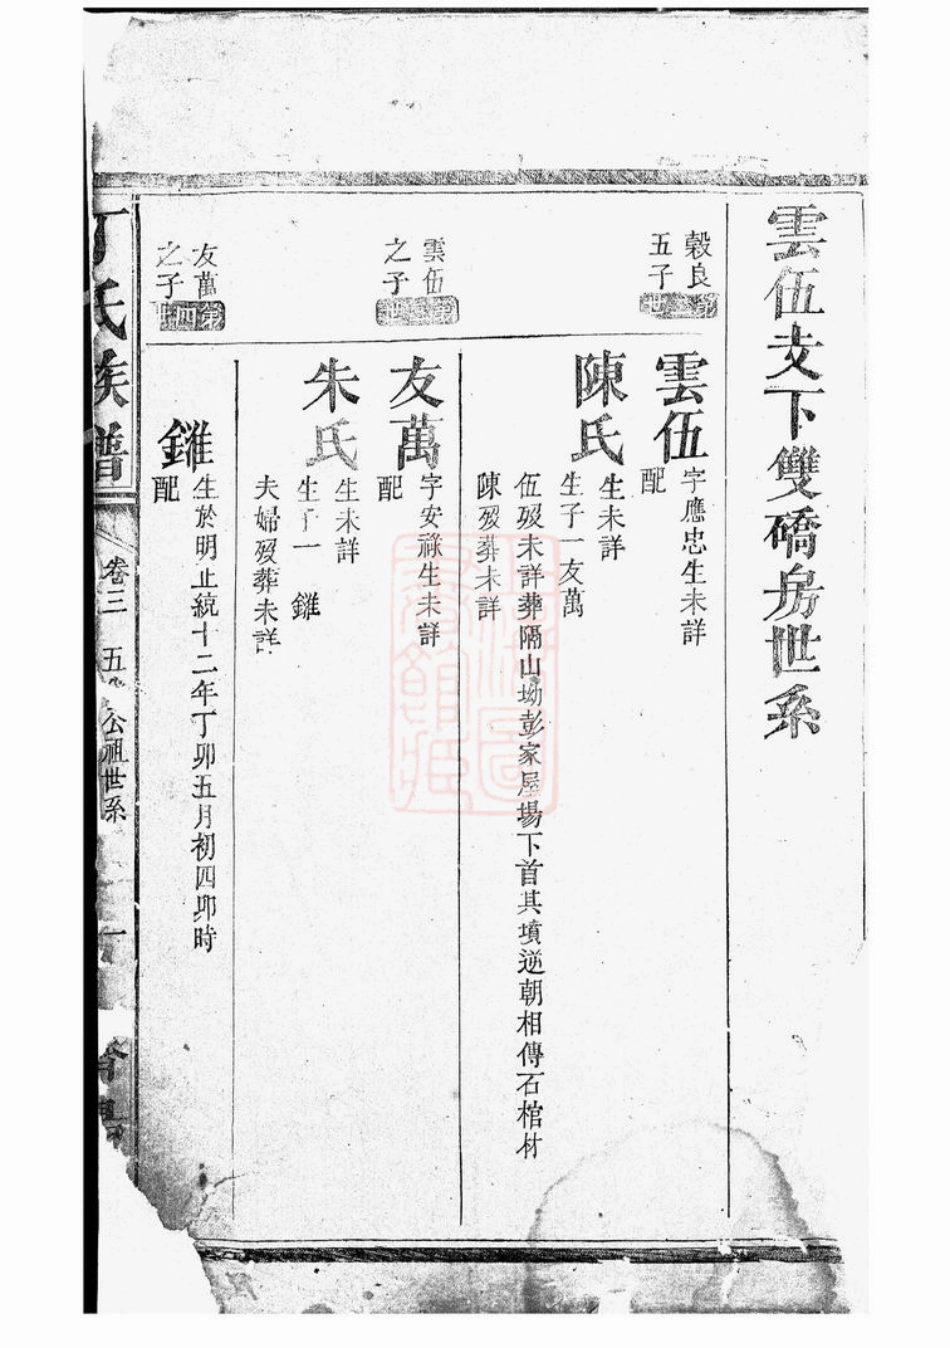 雲伍支下雙礄房世系
穀良
五子
第二世
雲伍
字應忠生未詳
配
陳氏
生未詳
生子一友萬
伍歿未詳葬隔山坳彭家屋場下首其墳逆朝相傳石棺材
陳歿葬未詳
雲伍
之子
第三世
友萬
字安祿生未詳
配
朱氏
生未詳
生子一 錐
夫婦歿葬未詳
友萬
之子
第四世
錐
生於明正統十二年丁卯五月初四卯時
配
丁氏族譜
卷三
五
公祖世系